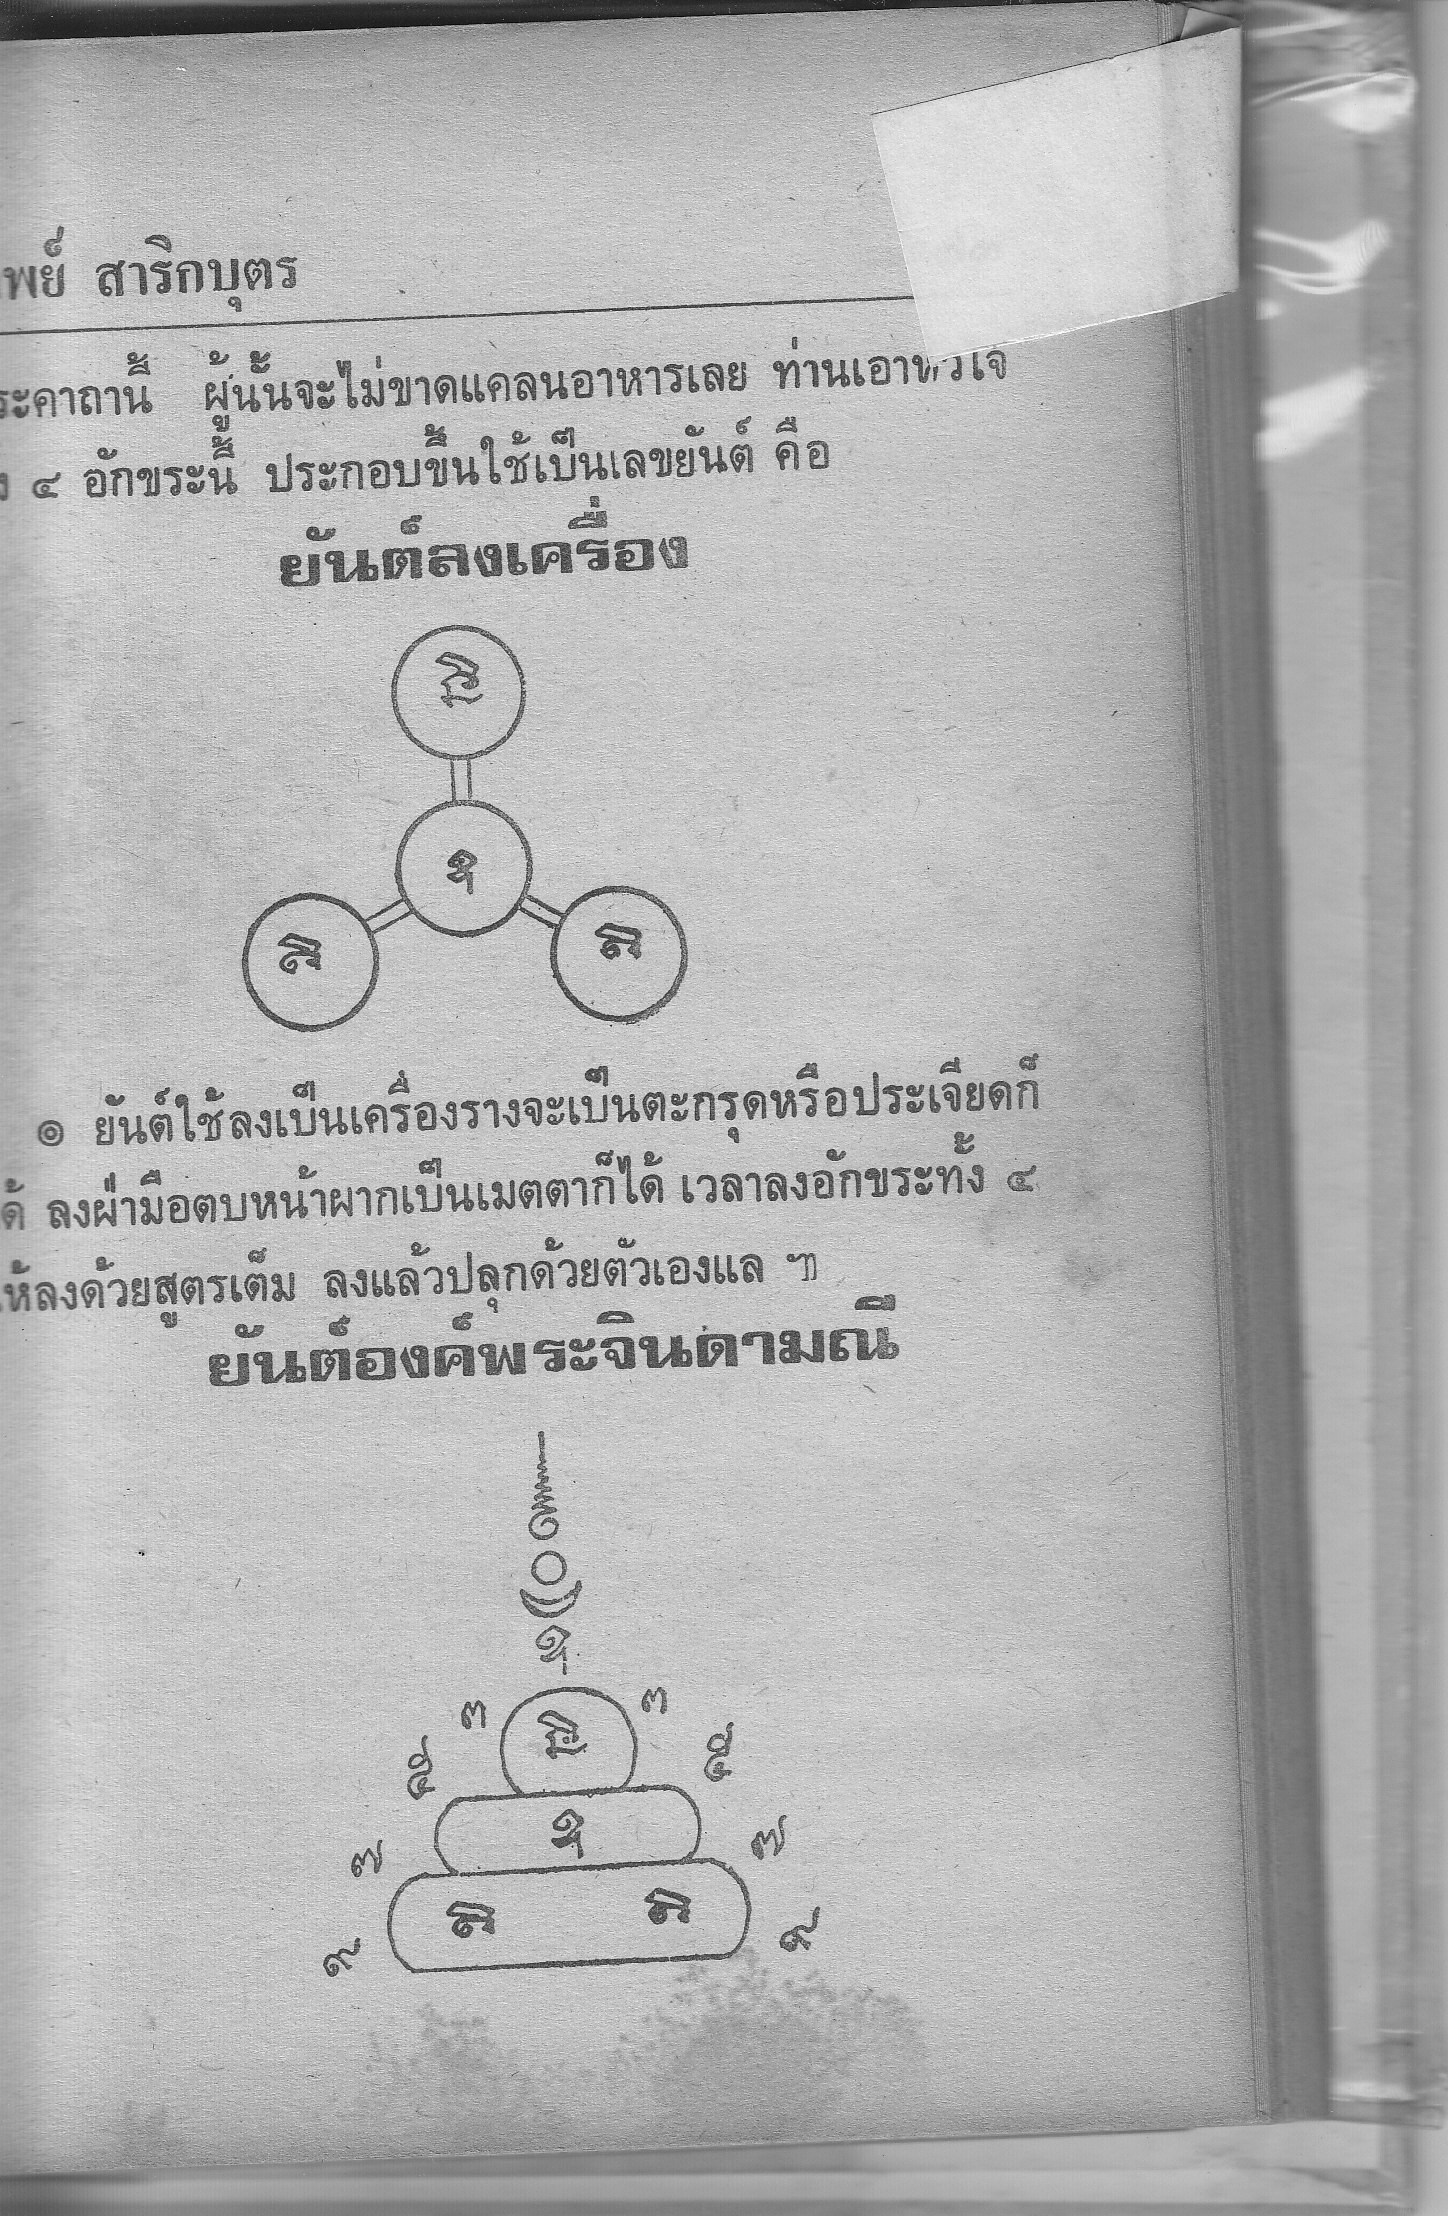 สาริกบุตร
ระคาถานี้ ผู้นั้นจะไม่ขาดแคลนอาหารเลย ท่านเอาหัวใจ
๔ อักขระนี้ ประกอบขึ้นใช้เป็นเลขยันต์ คือ
ยันต์ลงเครื่อง
๏ ยันต์ใช้ลงเป็นเครื่องรางจะเป็นตะกรุดหรือประเจียดก็
ด้ ลงฝ่ามือตบหน้าผากเป็นเมตตาก็ได้ เวลาลงอักขระทั้ง ๔
ห้ลงด้วยสูตรเต็ม ลงแล้วปลุกด้วยตัวเองแล ฯ
ยันต์องค์พระจินดามณี
๓ ๓
๕ ๕
๗ ๗
๙ ๙